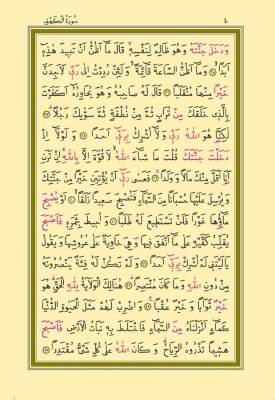 سُورَةُ الْكَهْفِ
وَدَخَلَ جَنَّتَهُ وَهُوَ ظَالِمٌ لِنَفْسِهِ قَالَ مَا أَظُنُّ أَنْ تَبِيدَ هَذِهِ
أَبَدًا وَمَا أَظُنُّ السَّاعَةَ قَائِمَةً وَلَئِنْ رُدِدْتُ إِلَى رَبِّي لَأَجِدَنَّ
خَيْرًا مِنْهَا مُنْقَلَبًا قَالَ لَهُ صَاحِبُهُ وَهُوَ يُحَاوِرُهُ أَكَفَرْتَ
بِالَّذِي خَلَقَكَ مِنْ تُرَابٍ ثُمَّ مِنْ نُطْفَةٍ ثُمَّ سَوَّاكَ رَجُلًا
لَكِنَّا هُوَ اللَّهُ رَبِّي وَلَا أُشْرِكُ بِرَبِّي أَحَدًا وَلَوْلَا إِذْ
دَخَلْتَ جَنَّتَكَ قُلْتَ مَا شَاءَ اللَّهُ لَا قُوَّةَ إِلَّا بِاللَّهِ إِنْ تَرَنِ
أَنَا أَقَلَّ مِنْكَ مَالًا وَوَلَدًا فَعَسَى رَبِّي أَنْ يُؤْتِيَنِ خَيْرًا مِنْ جَنَّتِكَ
وَيُرْسِلَ عَلَيْهَا حُسْبَانًا مِنَ السَّمَاءِ فَتُصْبِحَ صَعِيدًا زَلَقًا أَوْ يُصْبِحَ
مَاؤُهَا غَوْرًا فَلَنْ تَسْتَطِيعَ لَهُ طَلَبًا وَأُحِيطَ بِثَمَرِهِ فَأَصْبَحَ
يُقَلِّبُ كَفَّيْهِ عَلَى مَا أَنْفَقَ فِيهَا وَهِيَ خَاوِيَةٌ عَلَى عُرُوشِهَا وَيَقُولُ
يَالَيْتَنِي لَمْ أُشْرِكْ بِرَبِّي أَحَدًا وَلَمْ تَكُنْ لَهُ فِئَةٌ يَنْصُرُونَهُ
مِنْ دُونِ اللَّهِ وَمَا كَانَ مُنْتَصِرًا هُنَالِكَ الْوَلَايَةُ لِلَّهِ الْحَقِّ هُوَ
خَيْرٌ ثَوَابًا وَخَيْرٌ عُقْبًا وَاضْرِبْ لَهُمْ مَثَلَ الْحَيَوةِ الدُّنْيَا
كَمَاءٍ أَنْزَلْنَاهُ مِنَ السَّمَاءِ فَاخْتَلَطَ بِهِ نَبَاتُ الْأَرْضِ فَأَصْبَحَ
هَشِيمًا تَذْرُوهُ الرِّيَاحُ وَكَانَ اللَّهُ عَلَى كُلِّ شَيْءٍ مُقْتَدِرًا